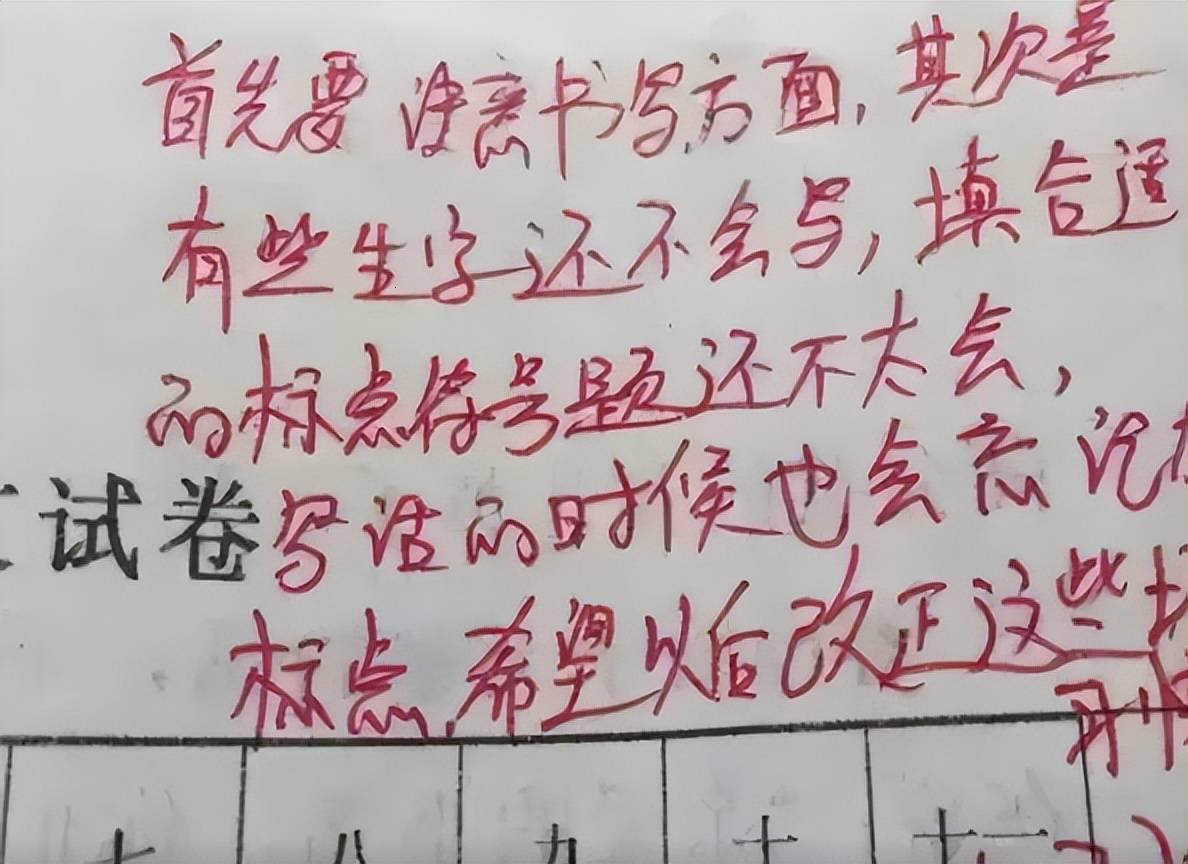 首先要注意书写方面，其次是
有些生字还不会写，填合适
的标点符号题还不太会，
试卷 写话的时候也会忘记
标点，希望以后改正这些
习惯
七 八 九 十 十一